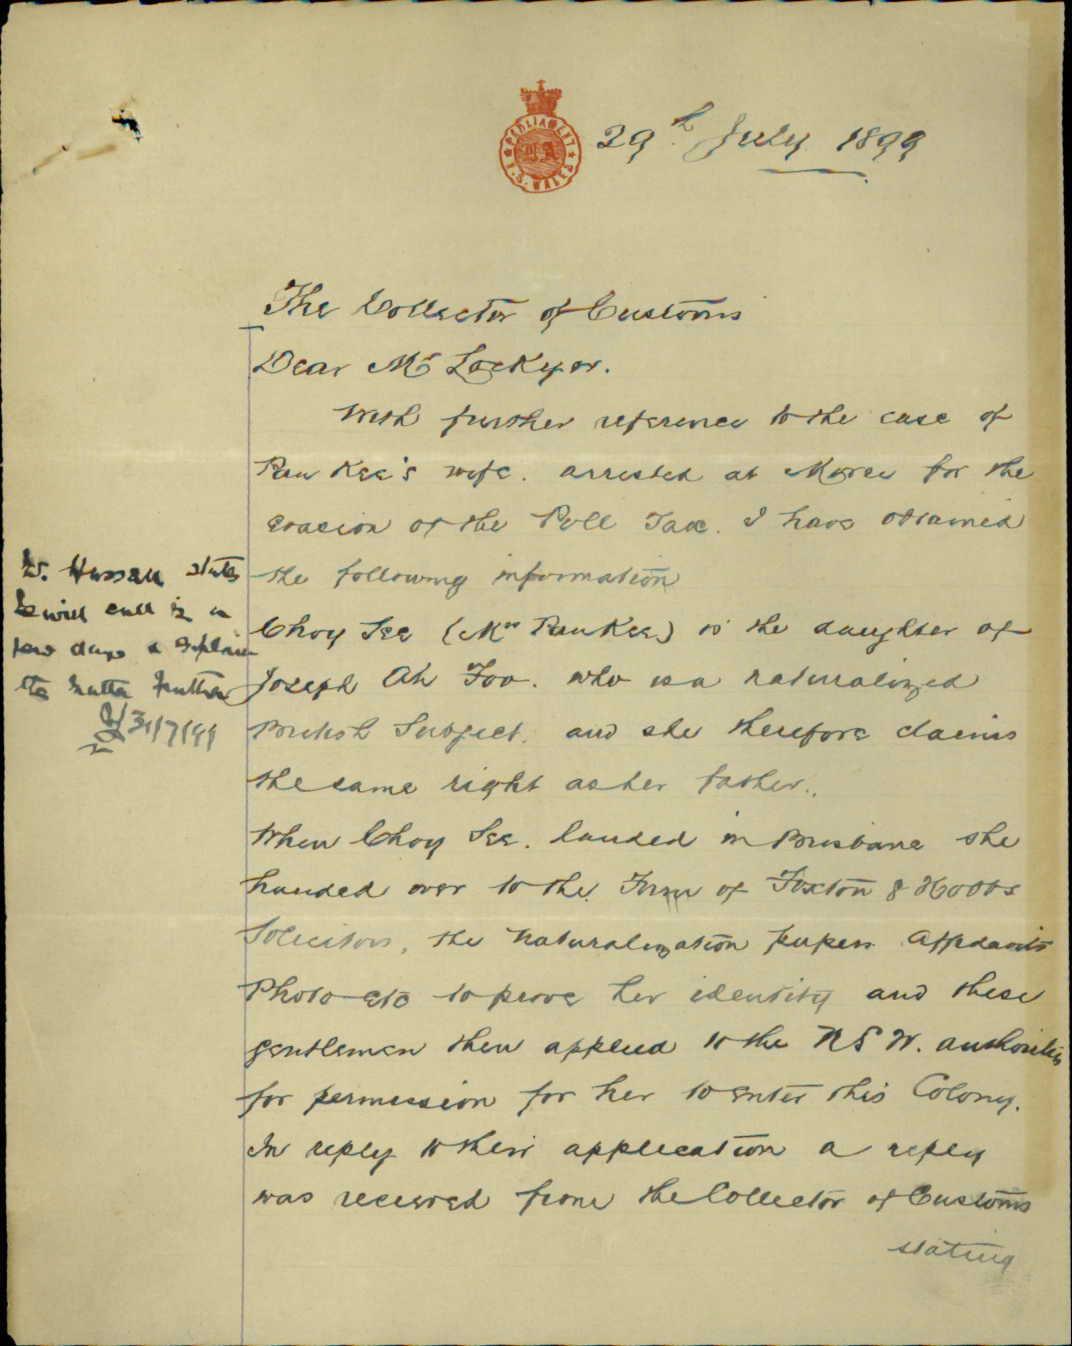 PARLIAMENT
N.S. WALES
29th July 1899
The Collector of Customs
Dear Mr Lockyer.
With further reference to the case of
Pan Kee's wife. arrested at Moree for the
evasion of the Poll Tax. I have obtained
the following information
Choy See (Mrs Pan Kee) is the daughter of
Joseph Ah Foo. who is a naturalized
British Subject. and she therefore claims
the same right as her father.
When Choy See. landed in Brisbane she
handed over to the Firm of Foxton & Hobbs
Solicitors, the naturalization papers Affidavits
Photo etc to prove her identity and these
gentlemen then applied to the NSW. authorities
for permission for her to enter this Colony.
In reply to their application a reply
was received from the Collector of Customs
stating
Hassall states
he will call in a
few days & explain
the matter further
31/7/99